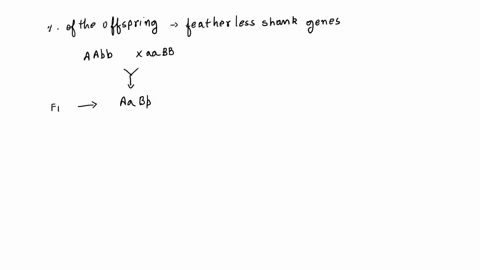 %. of the offspring → featherless shank genes
AAbb x aaBB
F1 → AaBb